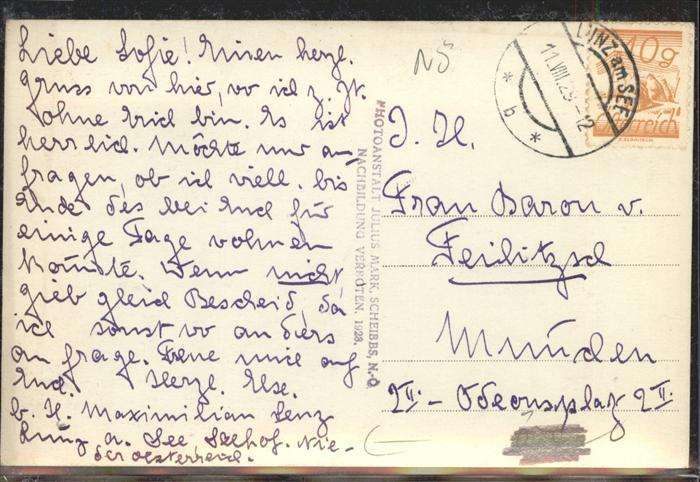 Liebe Sofie! Einen herzl.
Gruss von hier, wo ich z. Zt.
ohne Erich bin. Es ist
herrlich. Möchte nur an-
fragen, ob ich viell. bis
Ende des bei Euch für
einige Tage wohnen
könnte. Wenn nicht,
gieb gleich Bescheid, da
ich sonst wo anders
an frage. Freue mich auf
Euch. Herzl. Else.
b. H. Maximilian Lenz
Lunz a. See Seehof. Nie-
der oesterreich.
PHOTOANSTALT JULIUS MARK, SCHEIBBS, N.Ö.
NACHBILDUNG VERBOTEN. 1928.
NÖ
LUNZ am SEE
11.VIII.29-12
* b *
10g
Österreich
I. H.
Frau Baron v.
Feilitzsch
München
Odeonsplatz 2 II.